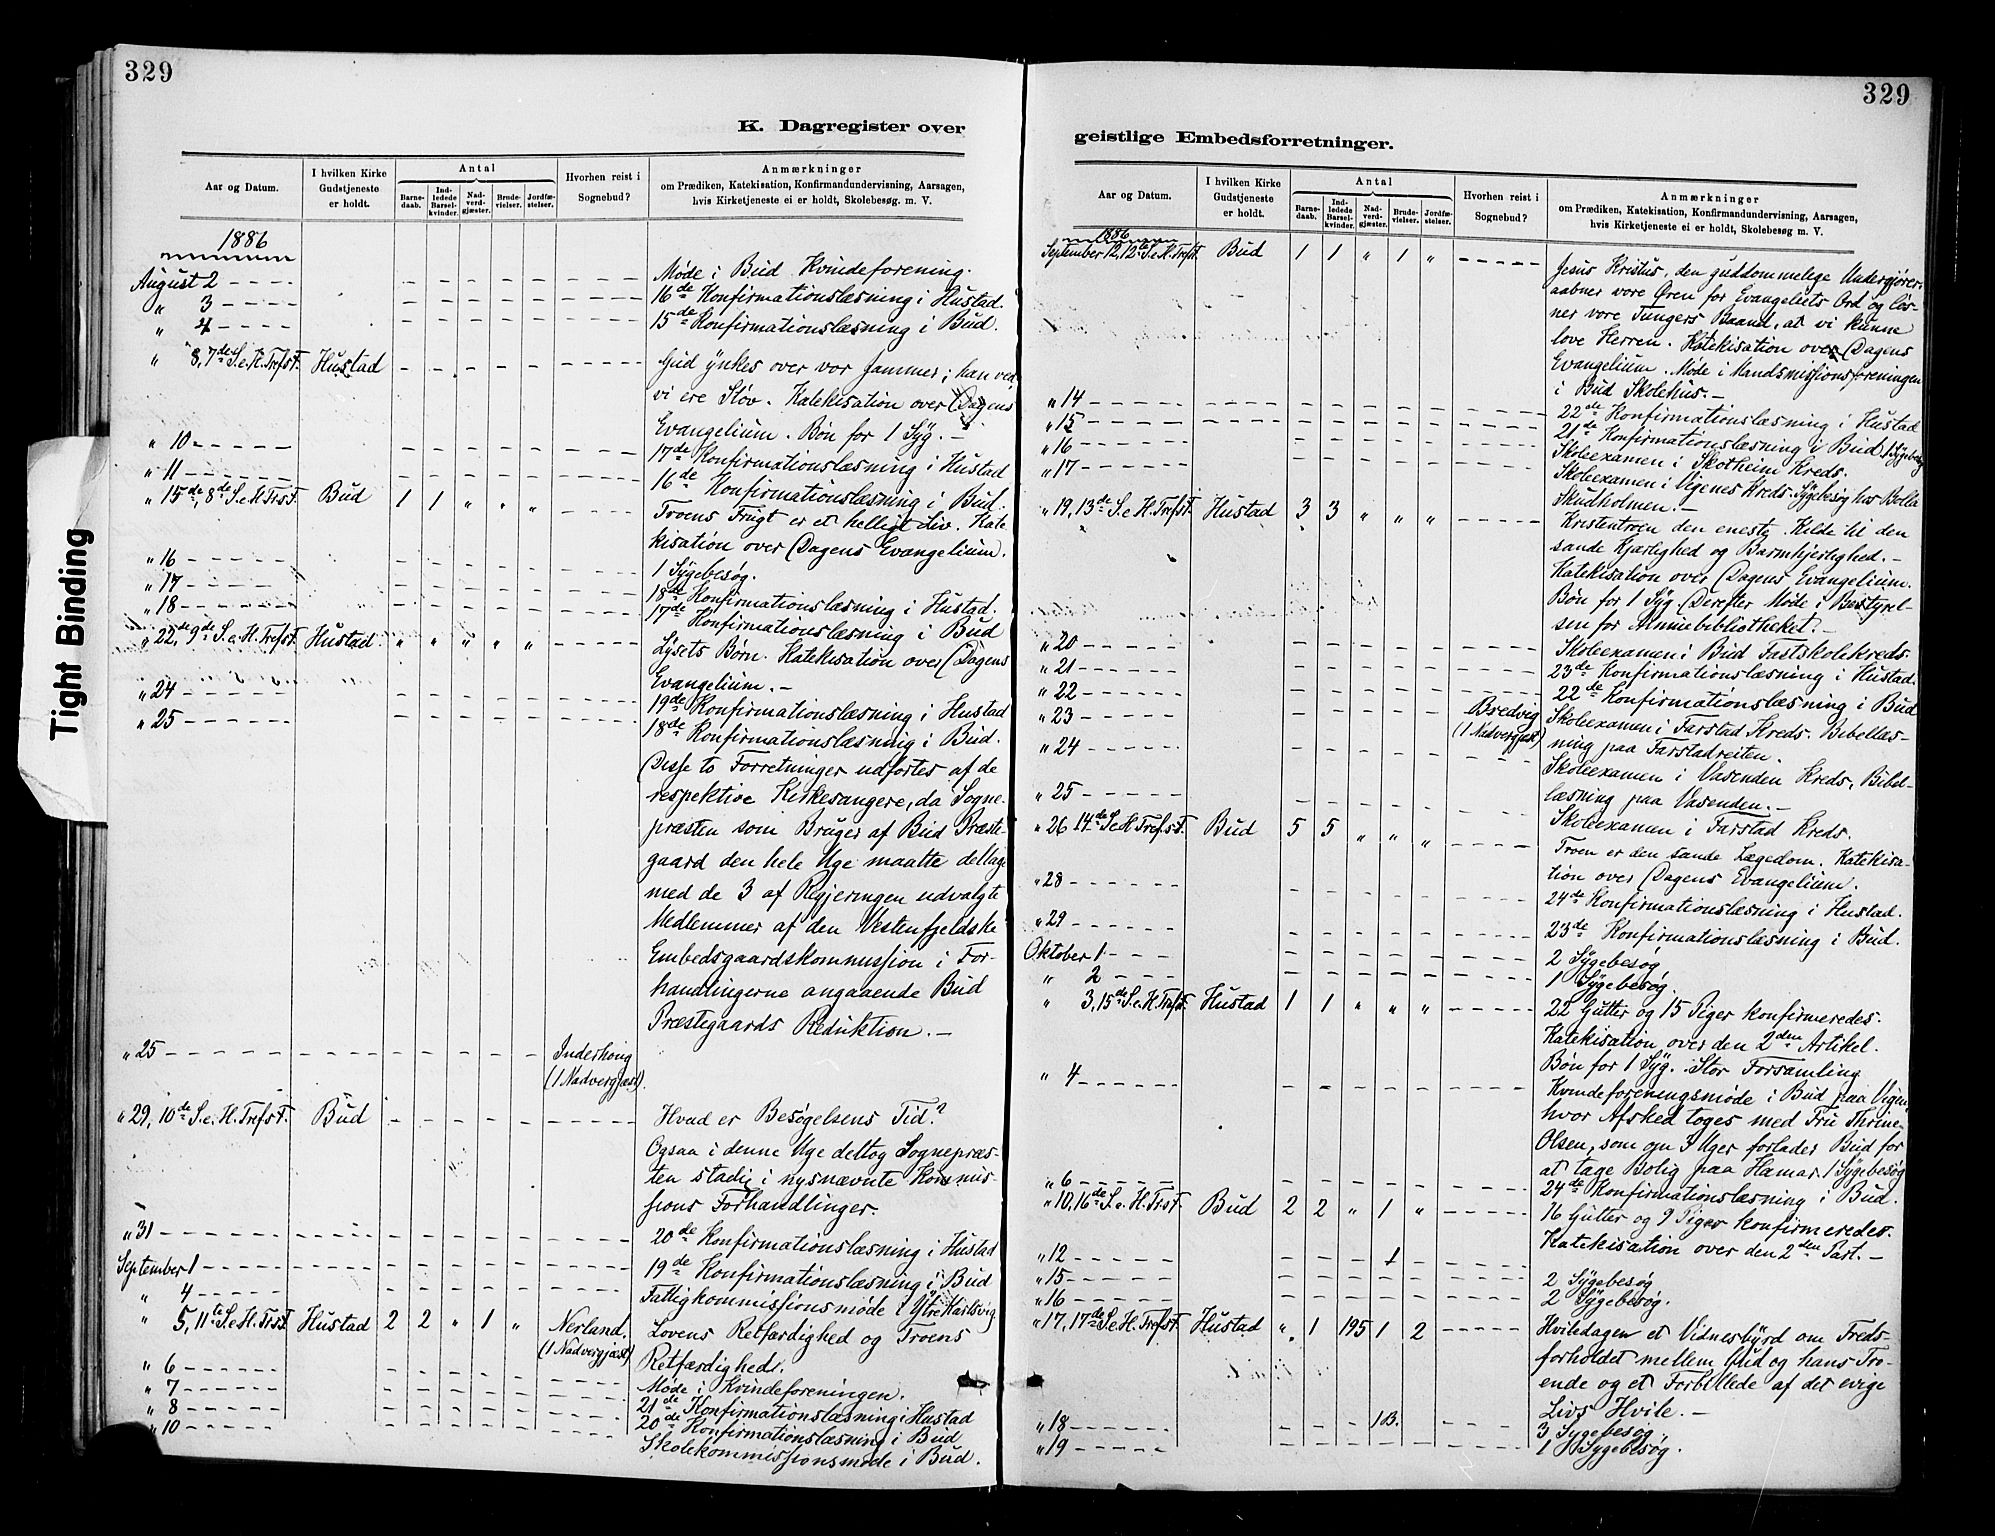 329
K. Dagregister over
Aar og Datum.
I hvilken Kirke Gudstjeneste er holdt.
Antal
Barnedaab.
Indledede Barselkvinder.
Nadverdgjæster.
Brudevielser.
Jordfæstelser.
Hvorhen reist i Sognebud?
Anmærkninger
om Prædiken, Katekisation, Konfirmandundervisning, Aarsagen,
hvis Kirketjeneste ei er holdt, Skolebesøg. m. V.
1886
August 2 Møde i Bud Kvindeforening.
" 3 16de Konfirmationslæsning i Hustad.
" 4 15de Konfirmationslæsning i Bud.
" 8, 7de S. e. H. Trefst. Hustad Gud ynkes over vor Jammer; han ved
vi ere Støv. Katekisation over Dagens
Evangelium. Bøn for 1 Syg. –
" 10 17de Konfirmationslæsning i Hustad
" 11 16de Konfirmationslæsning i Bud.
" 15de, 8de S. e. H. Trst. Bud 1 1 " " " Troens Frugt er et helligt Liv. Kate
kisation over Dagens Evangelium.
" 16 1 Sygebesøg.
" 17 18de Konfirmationslæsning i Hustad.
" 18 17de Konfirmationslæsning i Bud
" 22de, 9de S. e. H. Trefst. Hustad " " " " " Lysets Børn. Katekisation over Dagens
Evangelium. –
" 24 19de Konfirmationslæsning i Hustad
" 25 18de Konfirmationslæsning i Bud.
Disse to Forretninger udførtes af de
respektive Kirkesangere, da Sogne-
præsten som Bruger af Bud Præste-
gaard den hele Uge maatte deltage
med de 3 af Regjeringen udvalgte
Medlemmer af den Vestenfjeldske
Embedsgaardskommission i For-
handlingerne angaaende Bud
Præstegaards Reduktion. –
" 25 Inderhong
(1 Nadvergjæst).
" 29, 10de S. e. H. Trefst. Bud Hvad er Besøgelsens Tid?
Ogsaa i denne Uge deltog Sognepræs-
ten stadig i nysnævnte Kommis-
sions Forhandlinger.
" 31 20de Konfirmationslæsning i Hustad
September 1 19de Konfirmationslæsning i Bud
" 4 Fattigkommissionsmøde i Ytre Karlsvig.
" 5, 11te S. e. H. Trst. Hustad 2 2 " 1 " Nerland. Lovens Retfærdighed og Troens
(1 Nadvergjæst) Retfærdighed.
" 6 Møde i Kvindeforeningen.
" 7 21de Konfirmationslæsning i Hustad
" 8 20de Konfirmationslæsning i Bud
" 10 Skolekommissionsmøde i Bud.
329
geistlige Embedsforretninger.
Aar og Datum.
I hvilken Kirke Gudstjeneste er holdt.
Antal
Barnedaab.
Indledede Barselkvinder.
Nadverdgjæster.
Brudevielser.
Jordfæstelser.
Hvorhen reist i Sognebud?
Anmærkninger
om Prædiken, Katekisation, Konfirmandundervisning, Aarsagen,
hvis Kirketjeneste ei er holdt, Skolebesøg. m. V.
1886
September 12, 12te S. e. H. Trefst. Bud 1 1 " 1 " Jesus Kristus, den guddommelige Undergjører
aabner vore Øren for Evangeliets Ord og løs-
ner vore Tungers Baand, at vi kunne
love Herren. Katekisation over Dagens
Evangelium. Møde i Mandsmissionsforeningen
i Bud Skolehus. –
" 14 22de Konfirmationslæsning i Hustad
" 15 21de Konfirmationslæsning i Bud 1 Sygebesøg
" 16 Skoleexamen i Skotheim Kreds.
" 17 Skoleexamen i Vigenes Kreds. Sygebesøg hos Bolla
Skudholmen. –
" 19, 13de S. e. H. Trefst. Hustad 3 3 " " " Kristentroen den eneste Kilde til den
sande Kjærlighed og Barmhjertighed. –
Katekisation over Dagens Evangelium.
Bøn for 1 Syg. Derefter Møde i Bestyrel-
sen for Almuebibliotheket. –
" 20 Skoleexamen i Bud Fastskolekreds.
" 21 23de Konfirmationslæsning i Hustad.
" 22 22de Konfirmationslæsning i Bud
" 23 Bredvig Skoleexamen i Farstad Kreds. Bibellæs-
(1 Nadvergjæst) ning paa Farstadreiten.
" 24 Skoleexamen i Vasenden Kreds, Bibel-
læsning paa Vasenden. –
" 25 Skoleexamen i Farstad Kreds.
" 26 14de S. e. H. Trefst. Bud 5 5 " " " Troen er den sande Lægedom. Katekisa-
tion over Dagens Evangelium.
" 28 24de Konfirmationslæsning i Hustad.
" 29 23de Konfirmationslæsning i Bud.
Oktober 1 2 Sygebesøg
" 2 1 Sygebesøg.
" 3, 15de S. e. H. Trefst. Hustad 1 1 " " " 22 Gutter og 15 Piger konfirmeredes.
Katekisation over den 2den Artikel.
Bøn for 1 Syg. Stor Forsamling
" 4 Kvindeforeningsmøde i Bud paa Vigen,
hvor Afsked toges med Fru Thrine
Olsen, som om 3 Uger forlader Bud for
at tage Bolig paa Hamar. 1 Sygebesøg
" 6 24de Konfirmationslæsning i Bud.
" 10, 16de S. e. H. Trst. Bud 2 2 " 1 " 16 Gutter og 9 Piger konfirmeredes.
Katekisation over den 2den Part. –
" 12 1
" 15 2 Sygebesøg
" 16 2 Sygebesøg.
" 17, 17de S. e. H. Trefst. Hustad " 1 195 1 2 Hviledagen et Vidnesbyrd om Freds-
forholdet mellem Gud og hans Tro-
ende og et Forbillede af det evige
Livs Hvile. –
" 18 1 B. 3 Sygebesøg
" 19 1 Sygebesøg.
Tight Binding